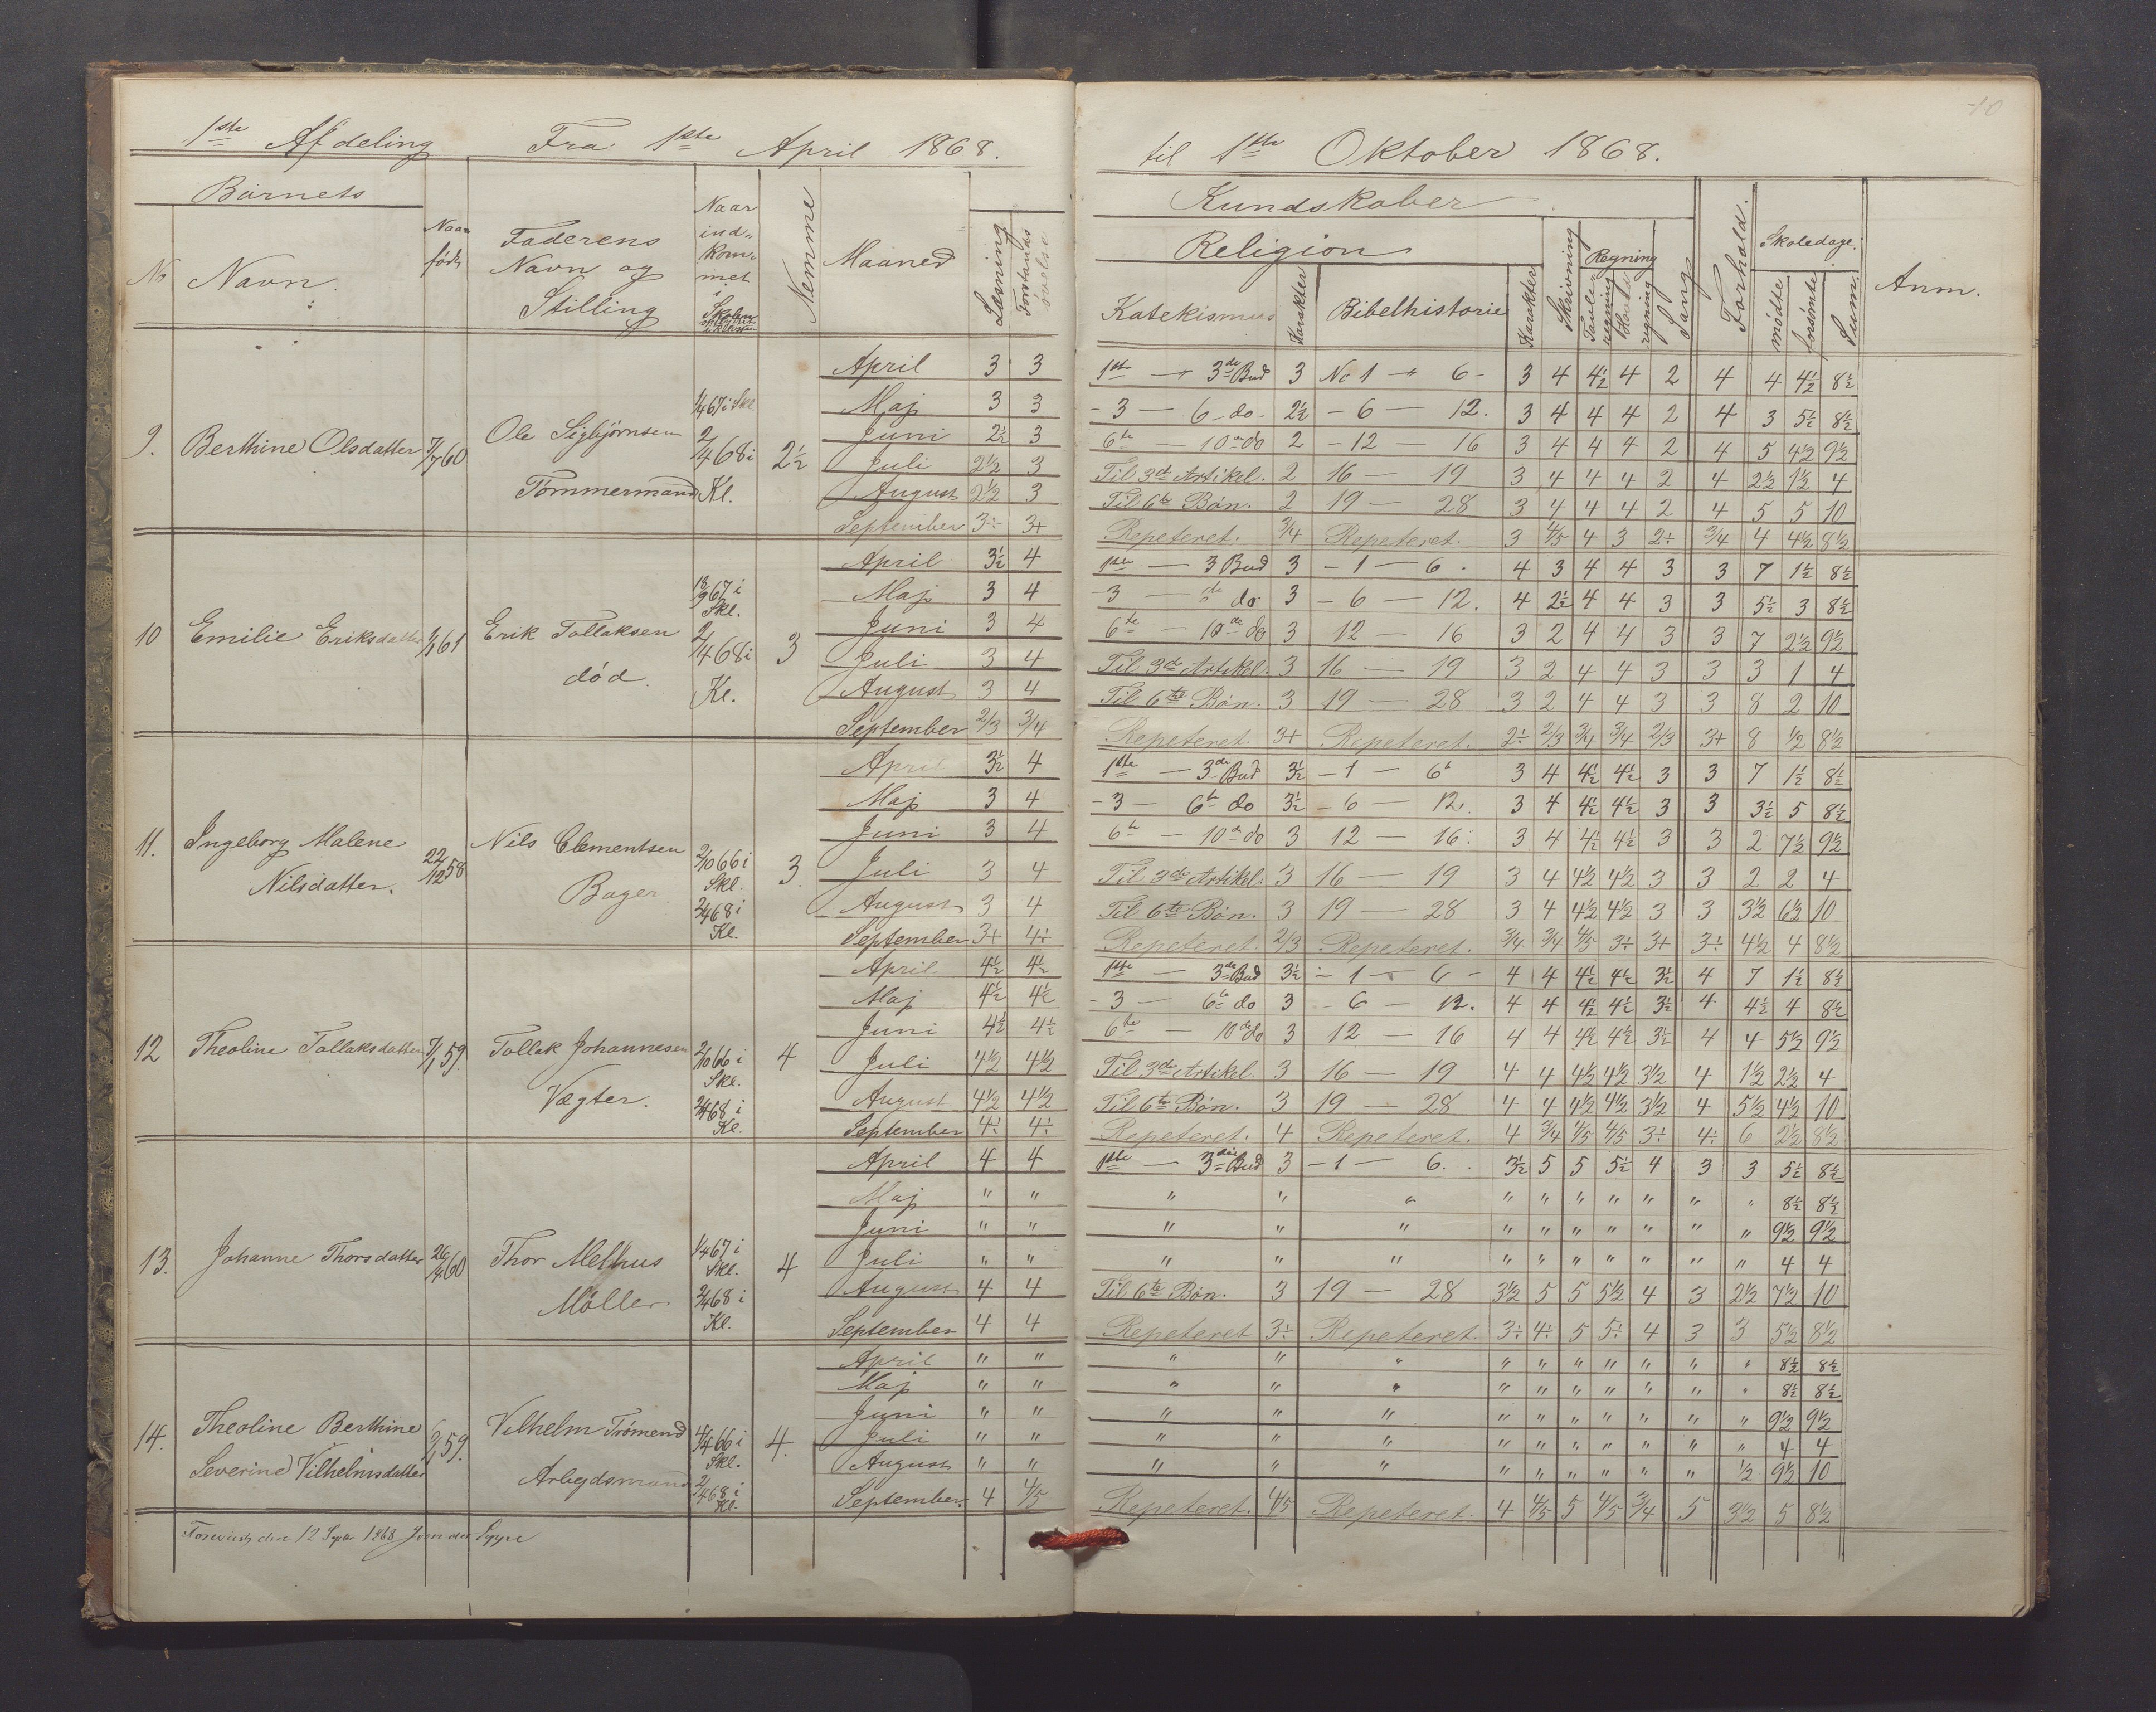 1ste Afdeling Fra 1ste April 1868. til 1ste Oktober 1868.
10
Barnets
No Navn.
Naar født
Faderens Navn og Stilling
Naar indkommet i Skolen
Nemme
Maaned
Læsning
Forstandsøvelse
Kundskaber
Religion
Katekismus
Karakter
Bibelhistorie
Karakter
Skrivning
Regning
Tavleregning
Hovedregning
Sang
Forhold.
Skoledage.
mødte
forsømte
Sum.
Anm.
9. Berthine Olsdatter 7/7 60 Ole Sigbjørnsen Tømmermand 1/4 67 i Skl. 2/4 68 i Kl. 2½
April 3 3 1ste — 3de Bud 3 No 1 — 6 - 3 4 4½ 4 2 4 4 4½ 8½
Maj 3 3 - 3 — 6 - do - 2½ - 6 — 12. 3 4 4 4 2 4 3 5½ 8½
Juni 2½ 3 6te — 10de do 2 - 12 — 16 3 4 4 4 2 4 5 4½ 9½
Juli 2½ 3 Til 3de Artikel. 2 16 — 19 3 4 4 4 2 4 2½ 1½ 4
August 2½ 3 Til 6te Bøn. 2 19 — 28 3 4 4 4 2 4 5 5 10
September 3÷ 3+ Repeteret. 3/4 Repeteret. 3 4/5 4 3 2÷ 3/4 4 4½ 8½
10 Emilie Eriksdatter 1/1 61 Erik Tollaksen død. 18/9 67 i Skl. 2/4 68 i Kl. 3
April 3½ 4 1ste — 3 Bud 3 - 1 — 6 . 4 3 4 4 3 3 7 1½ 8½
Maj 3 4 - 3 — do 3 - 6 — 12. 4 2½ 4 4 3 3 5½ 3 8½
Juni 3 4 6te — 10de do 3 12 — 16 3 2 4 4 3 3 7 2½ 9½
Juli 3 4 Til 3de Artikel. 3 16 — 19 3 2 4 4 3 3 3 1 4
August 3 4 Til 6te Bøn. 3 19 — 28 3 2 4 4 3 3 8 2 10
September 2/3 3/4 Repeteret. 3+ Repeteret. 2÷ 2/3 3/4 3/4 2/3 3+ 8 ½ 8½
11. Ingeborg Malene Nilsdatter. 22/12 58 Nils Clementsen Bager 2/10 66 i Skl. 2/4 68 i Kl. 3.
April 3½ 4 1ste — 3de Bud 3½ - 1 — 6 3 4 4½ 4½ 3 3 7 1½ 8½
Maj 3 4 - 3 — 6te do 3½ - 6 — 12. 3 4 4½ 4½ 3 3 3½ 5 8½
Juni 3 4 6te — 10de do 3 12 — 16 3 4 4½ 4½ 3 3 2 7½ 9½
Juli 3 4 Til 3de Artikel. 3 16 — 19 3 4 4½ 4½ 3 3 2 2 4
August 3 4 Til 6te Bøn. 3 19 — 28 3 4 4½ 4½ 3 3 3½ 6½ 10
September 3+ 4÷ Repeteret. 2/3 Repeteret. 3/4 3/4 4/5 3÷ 3+ 3÷ 4½ 4 8½
12 Theoline Tollaksdatter 7/1 59. Tollak Johannesen Vægter. 2/10 66 i Skl. 2/4 68 i Kl. 4
April 4½ 4½ 1ste — 3de Bud 3½ - 1 — 6 - 4 4 4½ 4½ 3½ 4 7 1½ 8½
Maj 4½ 4½ - 3 — 6te do 3 - 6 — 12. 4 4 4½ 4½ 3½ 4 4½ 4 8½
Juni 4½ 4½ 6te — 10de do 3 12 — 16 4 4 4½ 4½ 3½ 4 4 5½ 9½
Juli 4½ 4½ Til 3de Artikel. 3 16 — 19 4 4 4½ 4½ 3½ 4 1½ 2½ 4
August 4½ 4½ Til 6te Bøn. 3 19 — 28 4 4 4½ 4½ 3½ 4 5½ 4½ 10
September 4÷ 4÷ Repeteret. 4 Repeteret. 4 3/4 4/5 4/5 3÷ 4÷ 6 2½ 8½
13. Johanne Thorsdatter 60 Thor Melhus Møller 1/4 67 i Skl. 2/4 68 i Kl. 4
April 4 4 1ste — 3die Bud 3 - 1 — 6. 3½ 5 5 5½ 4 3 3 5½ 8½
Maj " " " " " " " " " " " " 8½ 8½
Juni " " " " " " " " " " " " 9½ 9½
Juli " " " " " " " " " " " " 4 4
August 4 4 Til 6te Bøn. 3 19 — 28 3½ 5 5 5½ 4 3 2½ 7½ 10
September 4 4 Repeteret 3÷ Repeteret. 3÷ 4÷ 5 5÷ 4 3 3 5½ 8½
14. Theoline Berthine Severine Vilhelmsdatter 59. Vilhelm Tromend Arbejdsmand 4/4 66 i Skl. 2/4 68 i Kl. 4.
April " " " " " " " " " " " " 8½ 8½
Maj " " " " " " " " " " " " 8½ 8½
Juni " " " " " " " " " " " " 9½ 9½
Juli " " " " " " " " " " " " 4 4
August " " " " " " " " " " " ½ 9½ 10
September. 4 4/5 Repeteret. 4/5 Repeteret. 4 4/5 5 4/5 3/4 5 3½ 5 8½
den 12 Septbr 1868